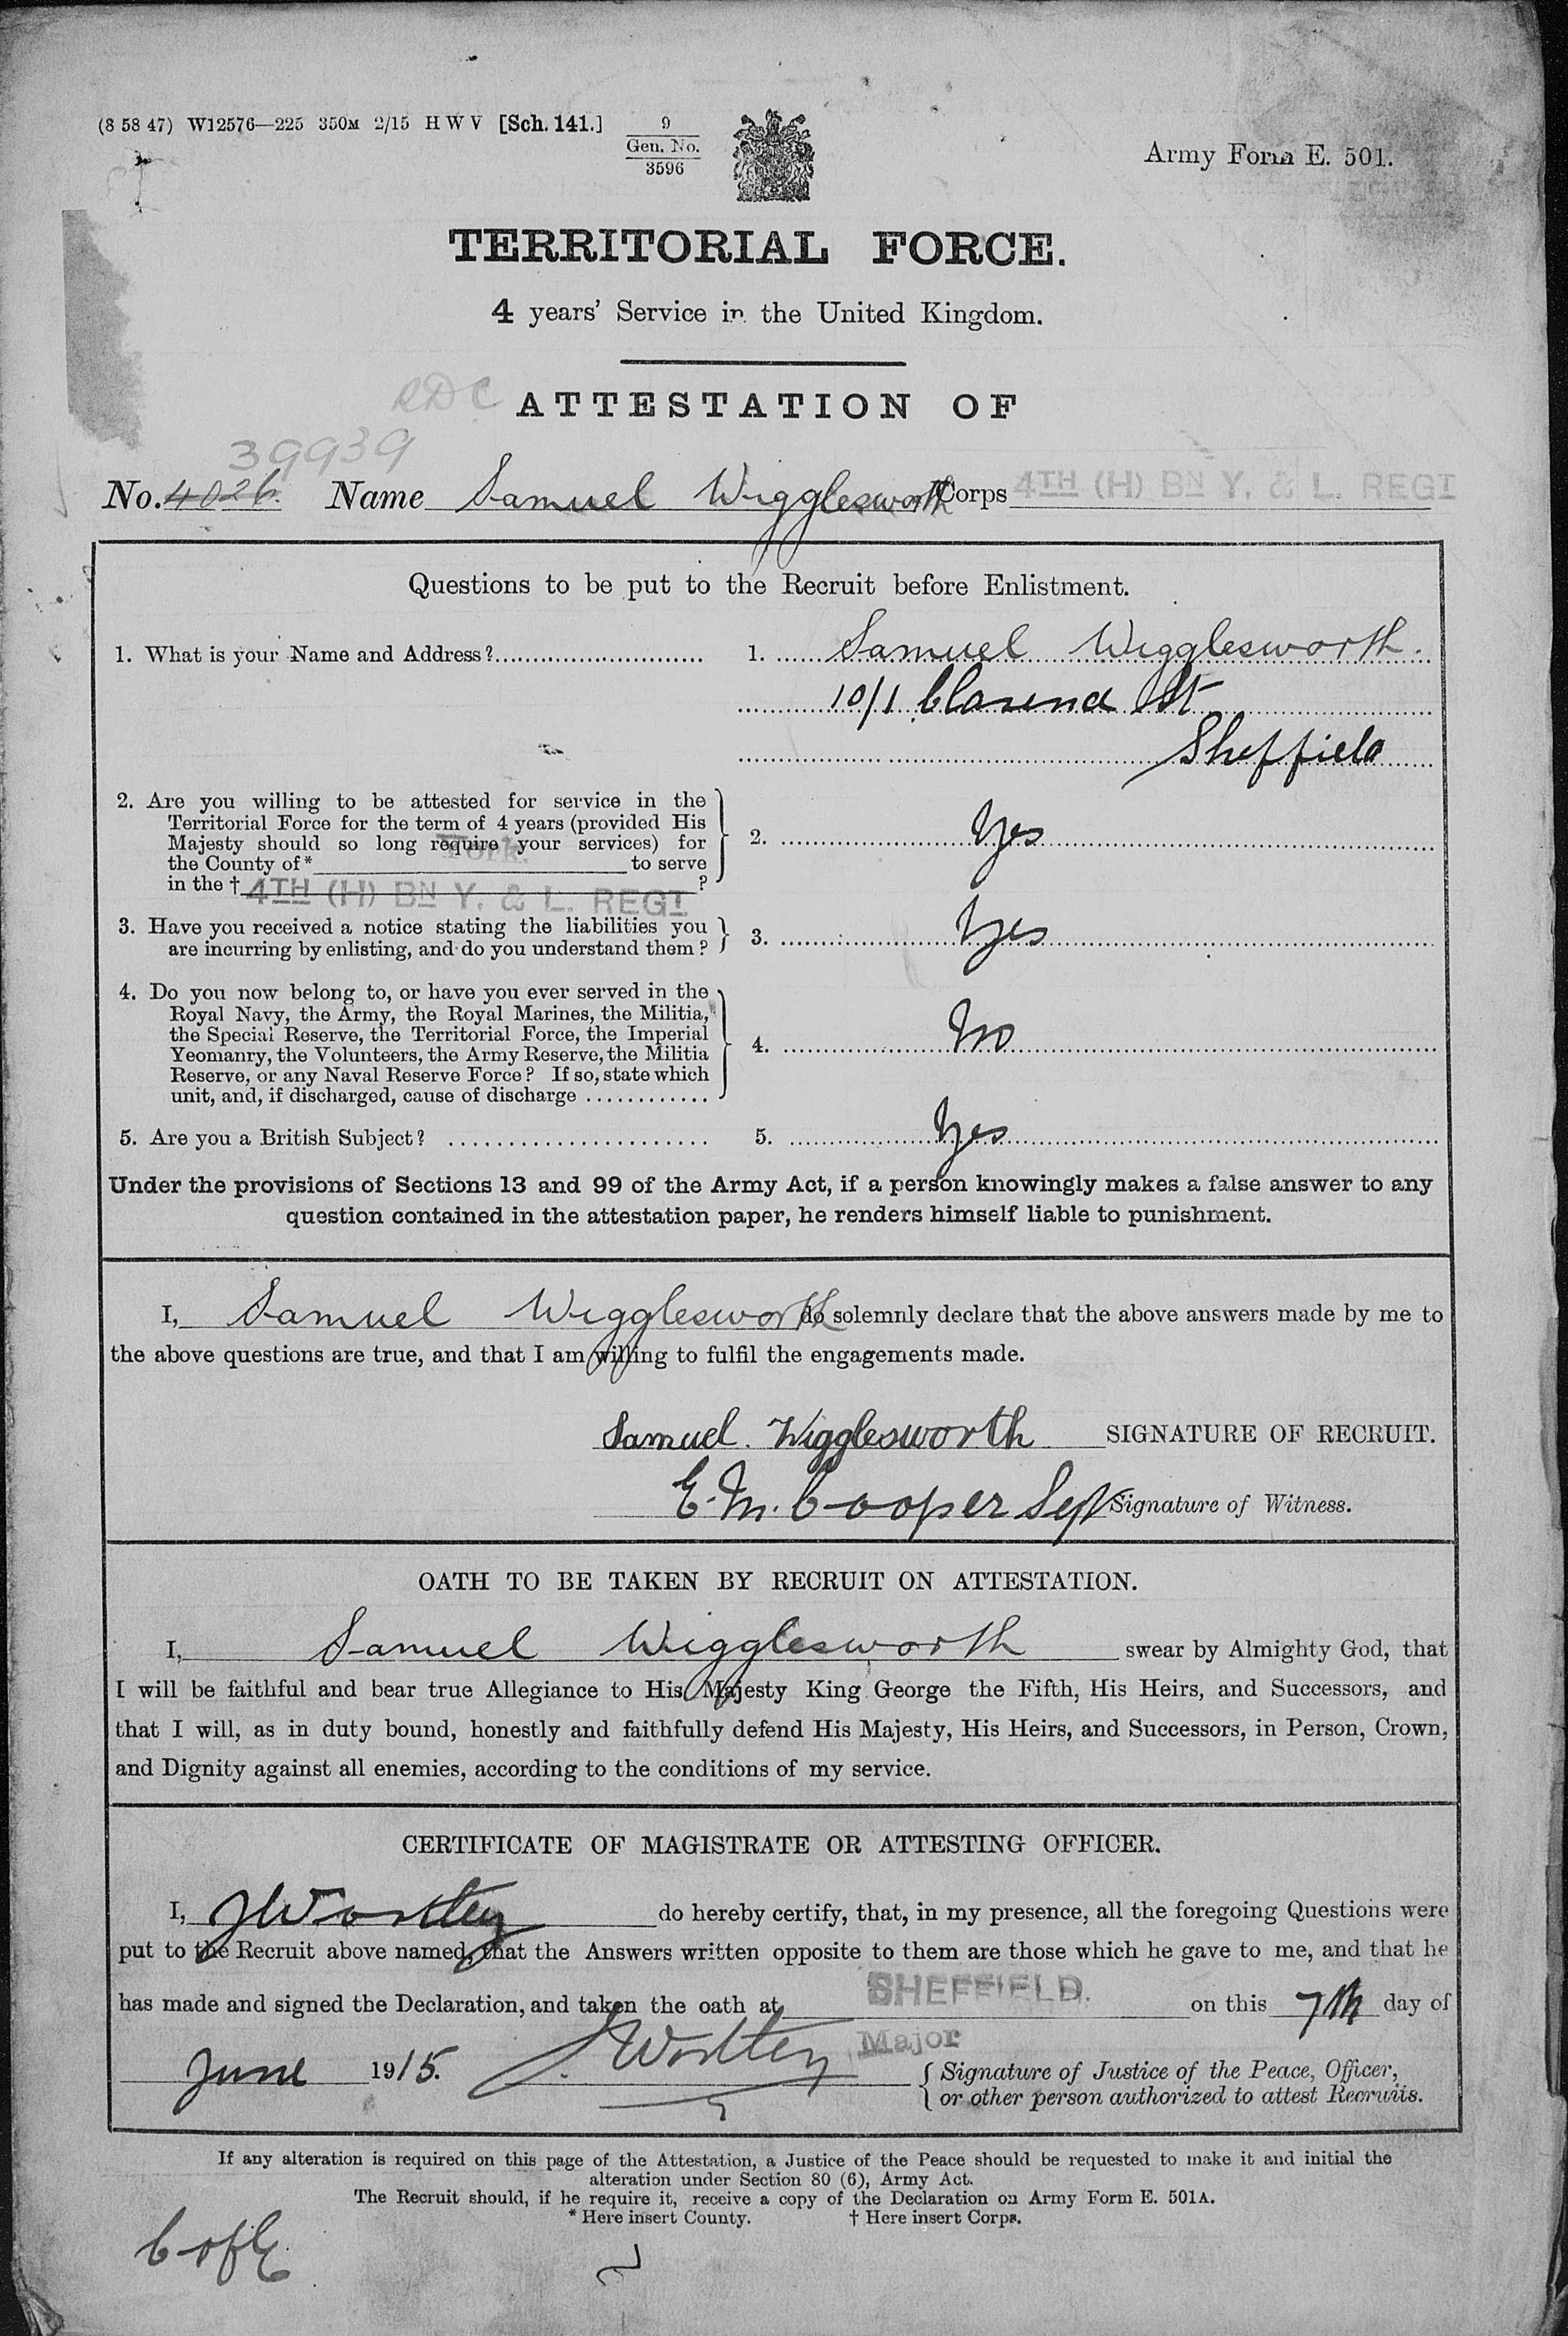 (8 58 47) W12576—225 350M 2/15 H W V [Sch. 141.]
9
Gen. No.
3596
Army Form E. 501.
TERRITORIAL FORCE.
4 years' Service in the United Kingdom.
RDC
ATTESTATION OF
39939
No. 4026. Name Samuel Wigglesworth Corps 4TH (H) BN Y. & L. REGT
Questions to be put to the Recruit before Enlistment.
1. What is your Name and Address?
1. Samuel Wigglesworth.
10/1 Clarence St
Sheffield
2. Are you willing to be attested for service in the
Territorial Force for the term of 4 years (provided His
Majesty should so long require your services) for
the County of * York. to serve
in the † 4TH (H) BN Y. & L. REGT ?
2. Yes
3. Have you received a notice stating the liabilities you
are incurring by enlisting, and do you understand them?
3. Yes
4. Do you now belong to, or have you ever served in the
Royal Navy, the Army, the Royal Marines, the Militia,
the Special Reserve, the Territorial Force, the Imperial
Yeomanry, the Volunteers, the Army Reserve, the Militia
Reserve, or any Naval Reserve Force? If so, state which
unit, and, if discharged, cause of discharge
4. No
5. Are you a British Subject?
5. Yes
Under the provisions of Sections 13 and 99 of the Army Act, if a person knowingly makes a false answer to any
question contained in the attestation paper, he renders himself liable to punishment.
I, Samuel Wigglesworth do solemnly declare that the above answers made by me to
the above questions are true, and that I am willing to fulfil the engagements made.
Samuel. Wigglesworth SIGNATURE OF RECRUIT.
E. M. Cooper Sgt Signature of Witness.
OATH TO BE TAKEN BY RECRUIT ON ATTESTATION.
I, Samuel Wigglesworth swear by Almighty God, that
I will be faithful and bear true Allegiance to His Majesty King George the Fifth, His Heirs, and Successors, and
that I will, as in duty bound, honestly and faithfully defend His Majesty, His Heirs, and Successors, in Person, Crown,
and Dignity against all enemies, according to the conditions of my service.
CERTIFICATE OF MAGISTRATE OR ATTESTING OFFICER.
I, J Wortley do hereby certify, that, in my presence, all the foregoing Questions were
put to the Recruit above named, that the Answers written opposite to them are those which he gave to me, and that he
has made and signed the Declaration, and taken the oath at SHEFFIELD. on this 7th day of
June 1915. J. Wortley Major
Signature of Justice of the Peace, Officer,
or other person authorized to attest Recruits.
If any alteration is required on this page of the Attestation, a Justice of the Peace should be requested to make it and initial the
alteration under Section 80 (6), Army Act.
The Recruit should, if he require it, receive a copy of the Declaration on Army Form E. 501A.
* Here insert County. † Here insert Corps.
C of E